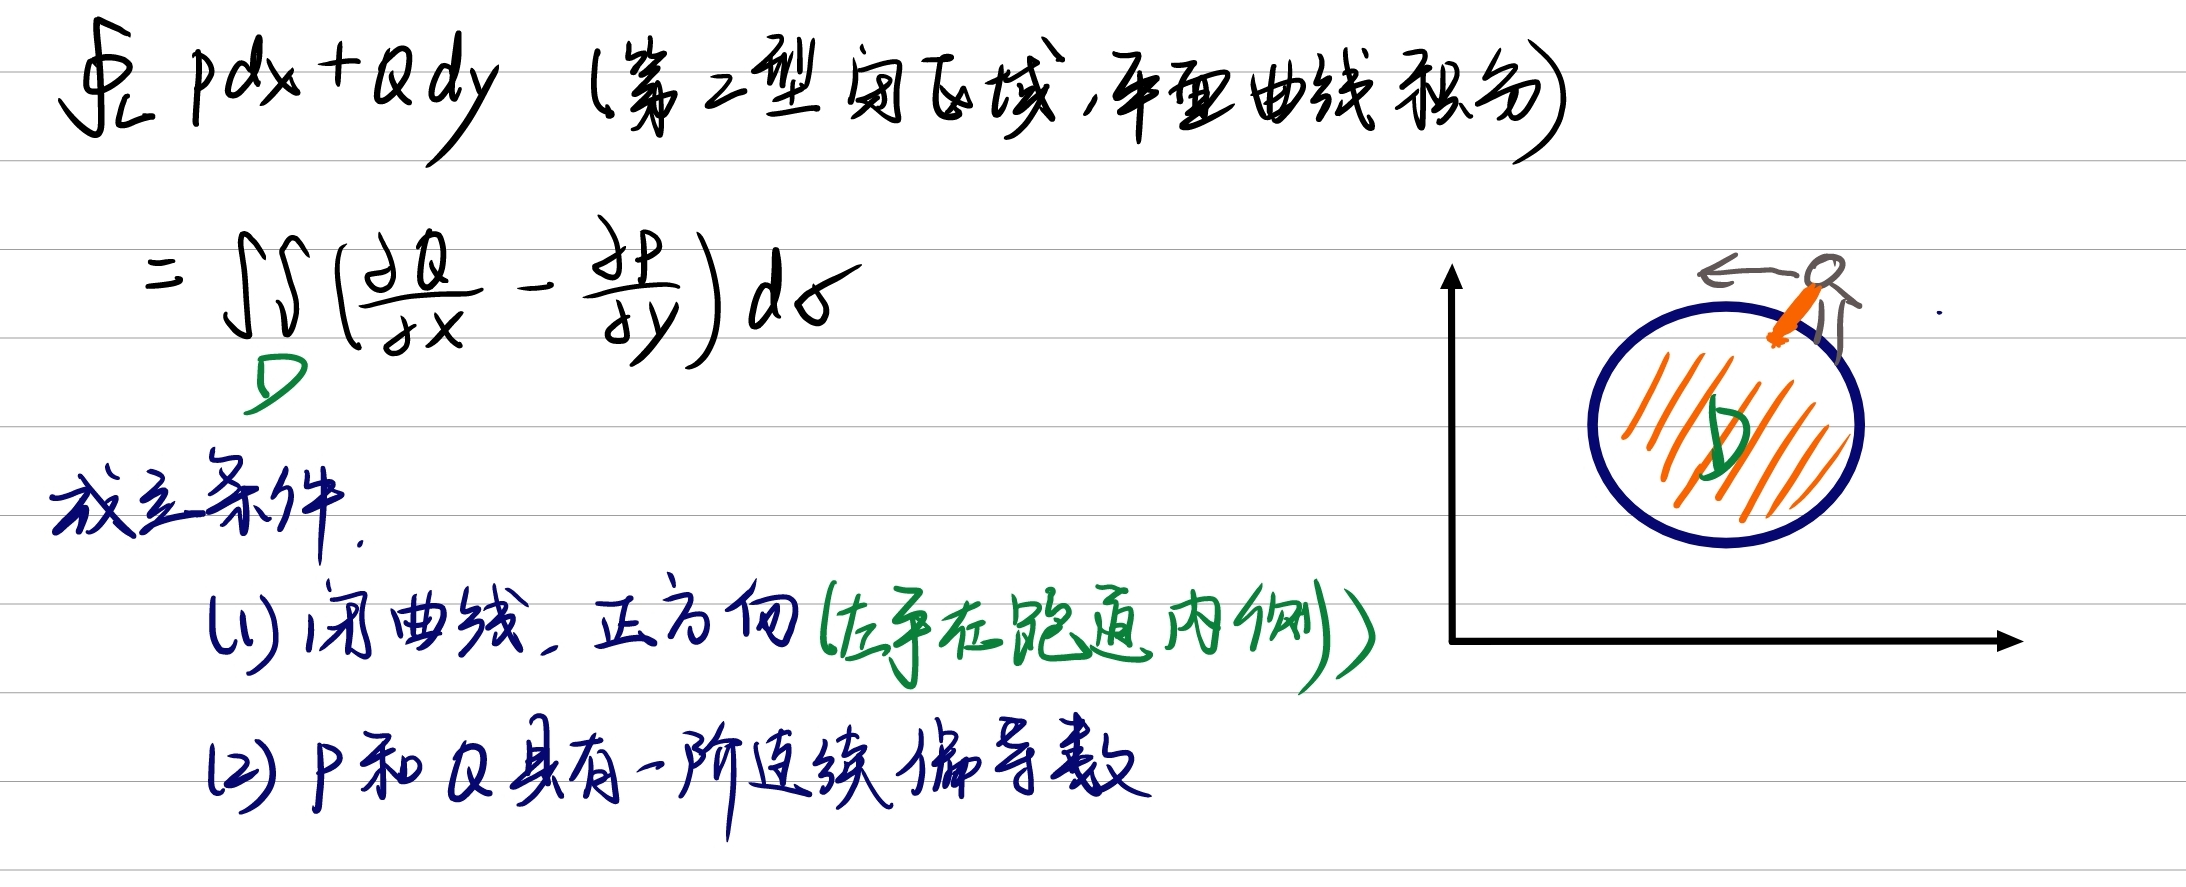 ∮_L Pdx + Qdy (第二型闭区域,平面曲线积分)
= ∬_D (∂Q/∂x - ∂P/∂y) dσ
成立条件.
(1) 闭曲线. 正方向 (左手在跑道内侧)
(2) P和Q具有一阶连续偏导数
D